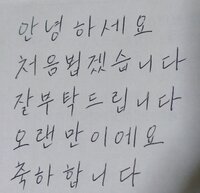 안녕하세요
처음뵙겠습니다
잘부탁드립니다
오랜만이에요
축하합니다